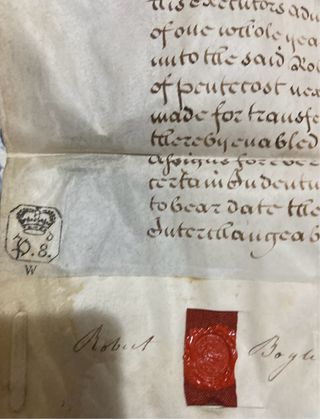 his executors adm
of one whole yea
unto the said Ro
of pentecost nex
made for transfe
thereby enabled
Assigns for ever
certain Indentu
to bear date the
Interchangeab
P. 8.
W
Robert Bogle